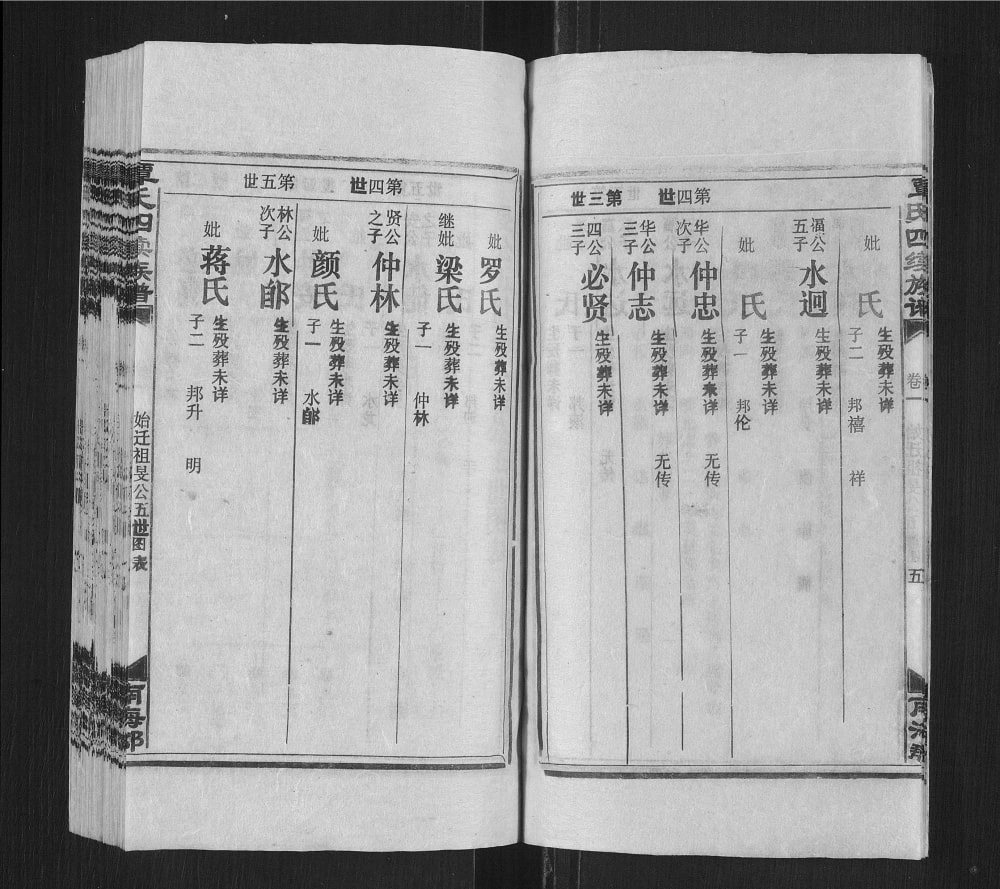 妣
氏
生殁葬未详
子二 邦禧 祥
福公五子
水迥
生殁葬未详
妣
氏
生殁葬未详
子一 邦伦
第四世
华公次子
仲忠
生殁葬未详
无传
华公三子
仲志
生殁葬未详
无传
第三世
四公三子
必贤
生殁葬未详
卷一
五
妣
罗氏
生殁葬未详
继妣
梁氏
生殁葬未详
子一 仲林
第四世
贤公之子
仲林
生殁葬未详
妣
颜氏
生殁葬未详
子一 水郎
第五世
林公次子
水郎
生殁葬未详
妣
蒋氏
生殁葬未详
子二 邦升 明
覃氏四续族谱
始迁祖旻公五世图表
南海郡